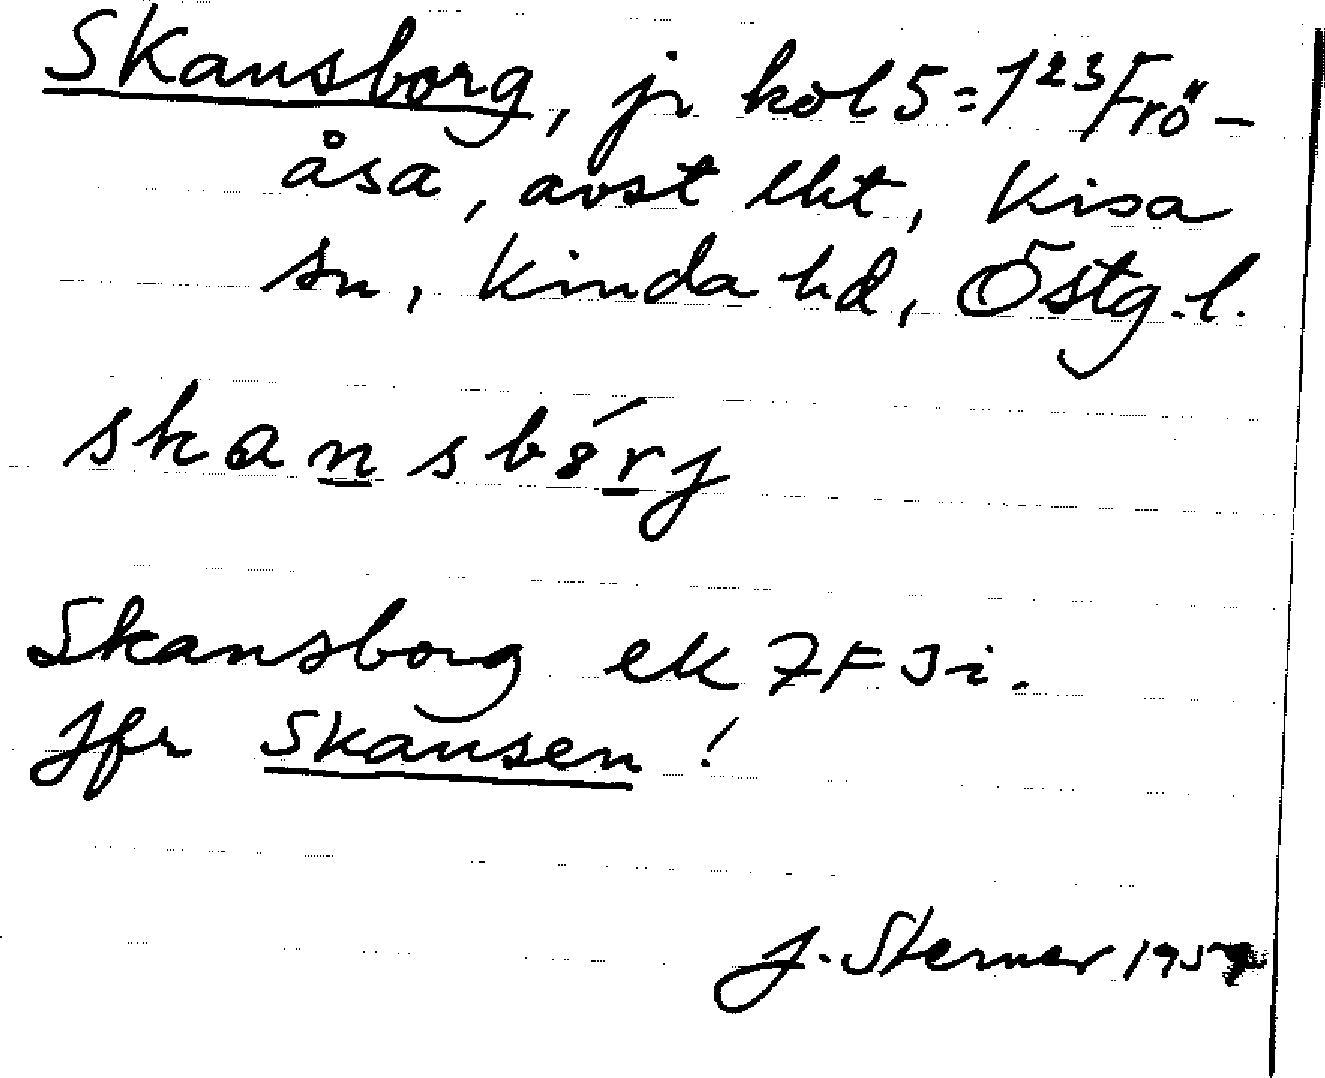 Skansborg, jr kol 5 = 1²³ Frö-
åsa, avst lht, Kisa
sn, Kinda hd, Östg. l.
skansbórj
Skansborg ek 7F3i.
Jfr Skansen!
J. Sterner 1957